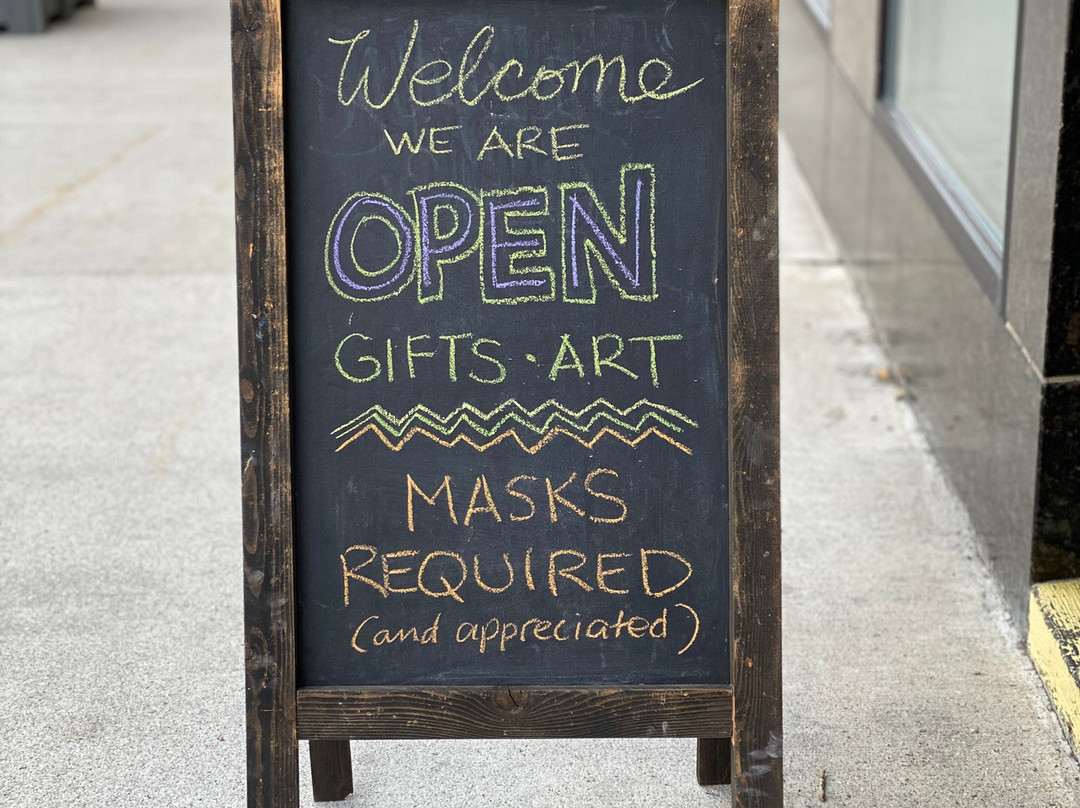 Welcome
WE ARE
OPEN
GIFTS · ART
MASKS
REQUIRED
(and appreciated)